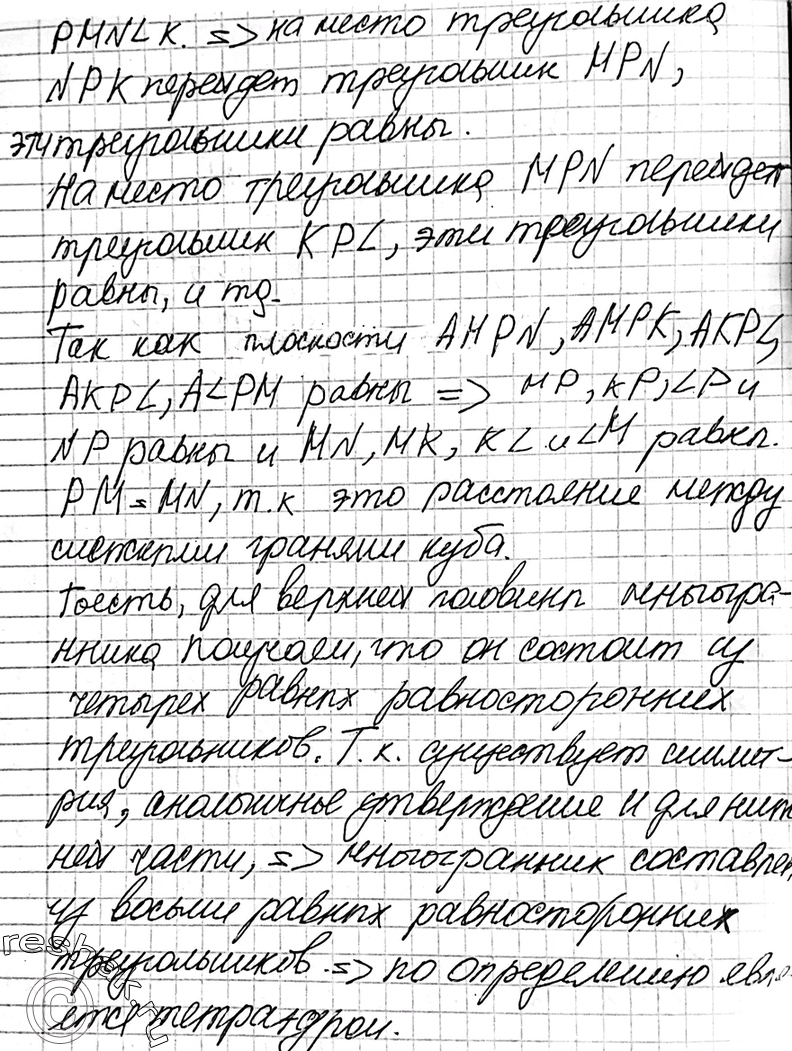 PMNLK. => на место треугольника
NPK перейдет треугольник MPN,
эти треугольники равны.
На место треугольника MPN перейдет
треугольник KPL, эти треугольники
равны, и тд.
Так как плоскости AMPN, AMPK, AKPL,
AKPL, ALPM равны => MP, KP, LP и
NP равны и MN, MK, KL и LM равны.
PM = MN, т.к это расстояние между
смежными гранями куба.
тоесть, для верхней половины многогра-
нника получаем, что он состоит из
четырех равных равносторонних
треугольников. Т.к. существует симмет-
рия, аналогичное утверждение и для ниж
ней части, => многогранник составлен
из восьми равных равносторонних
треугольников. => по определению явля-
ется тетраэдром.
reshak.ru
©